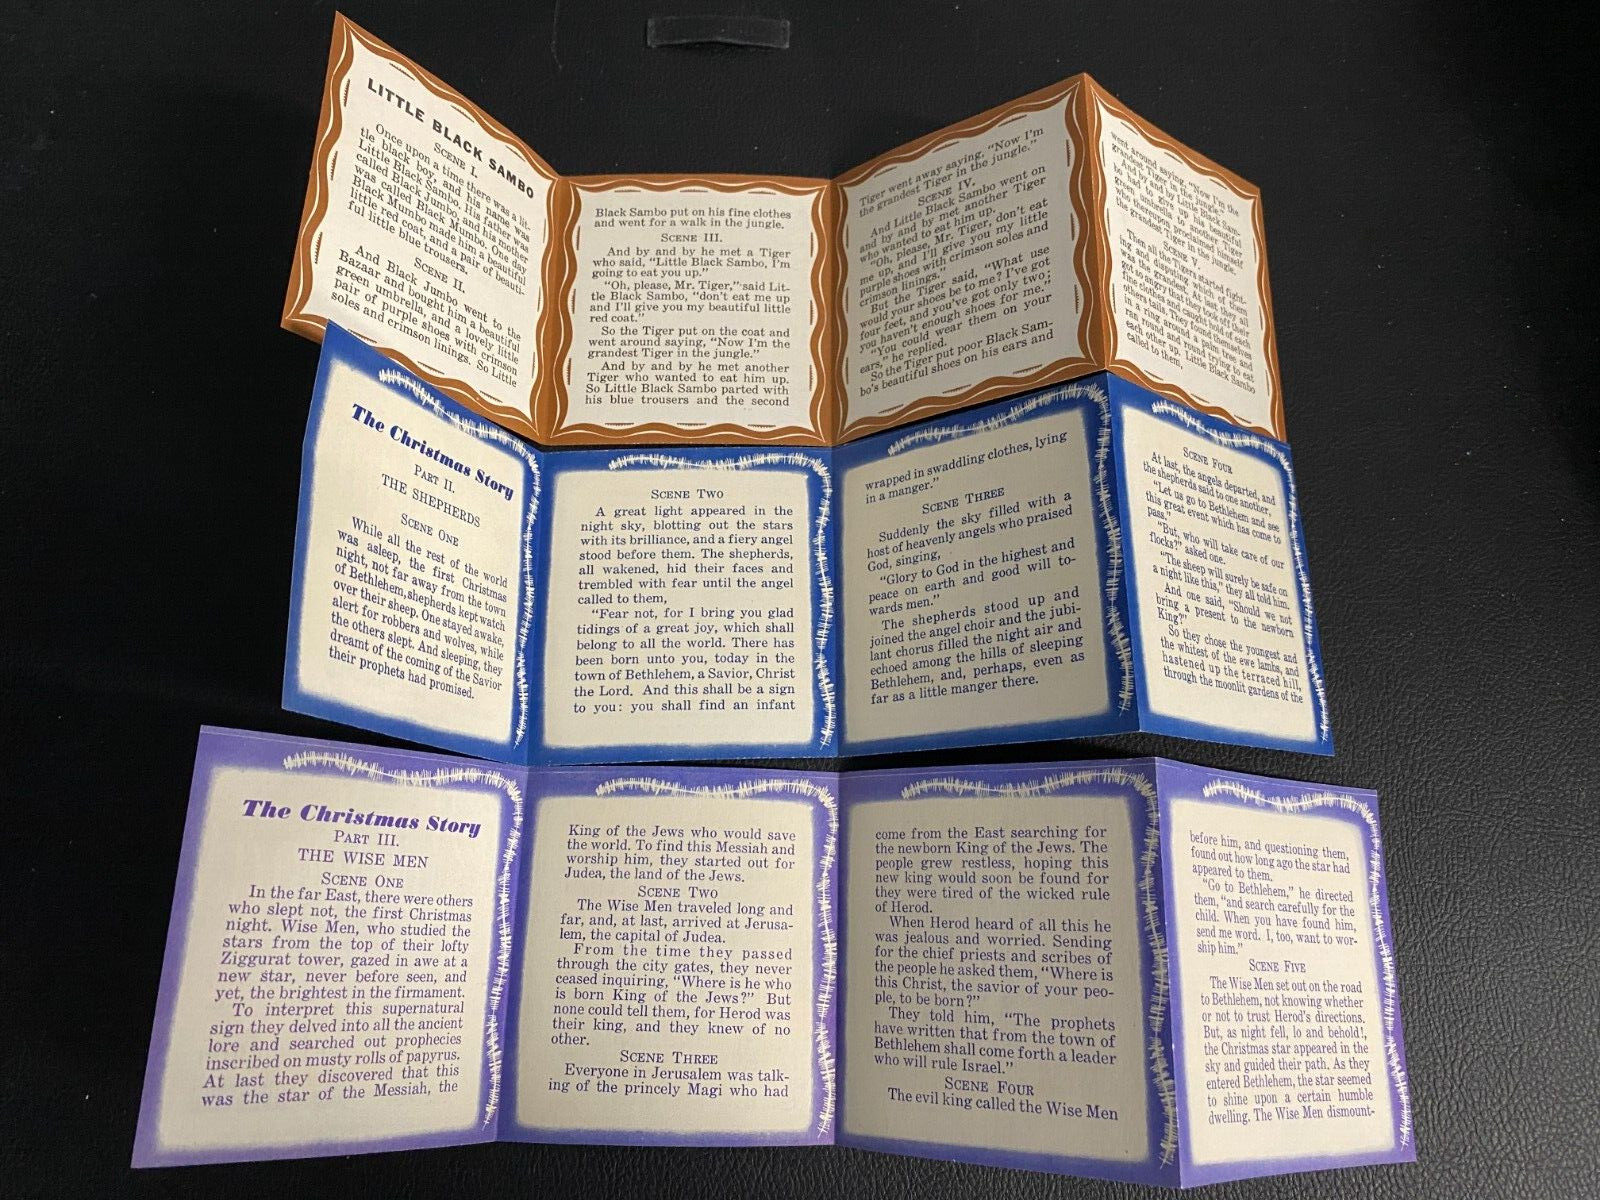 LITTLE BLACK SAMBO
SCENE I.
Once upon a time there was a lit-
tle black boy, and his name was
Little Black Sambo. His father was
called Black Jumbo, and his mother
was called Black Mumbo. One day
Black Mumbo made him a beautiful
little red coat, and a pair of beauti-
ful little blue trousers.
SCENE II.
And Black Jumbo went to the
Bazaar and bought him a beautiful
green umbrella, and a lovely little
pair of purple shoes with crimson
soles and crimson linings. So Little
Black Sambo put on his fine clothes
and went for a walk in the jungle.
SCENE III.
And by and by he met a Tiger
who said, "Little Black Sambo, I'm
going to eat you up."
"Oh, please, Mr. Tiger," said Lit-
tle Black Sambo, "don't eat me up
and I'll give you my beautiful little
red coat."
So the Tiger put on the coat and
went around saying, "Now I'm the
grandest Tiger in the jungle."
And by and by he met another
Tiger who wanted to eat him up.
So Little Black Sambo parted with
his blue trousers and the second
Tiger went away saying, "Now I'm
the grandest Tiger in the jungle."
SCENE IV.
And Little Black Sambo went on
and by and by met another Tiger
who wanted to eat him up.
"Oh, please, Mr. Tiger, don't eat
me up, and I'll give you my little
purple shoes with crimson soles and
crimson linings."
But the Tiger said, "What use
would your shoes be to me? I've got
four feet, and you've got only two;
you haven't enough shoes for me."
"You could wear them on your
ears," he replied.
So the Tiger put poor Black Sam-
bo's beautiful shoes on his ears and
went around saying, "Now I'm the
grandest Tiger in the jungle."
And by and by Little Black Sam-
bo had to give up his beautiful
green umbrella to another Tiger
who thereupon proclaimed himself
the grandest Tiger in the jungle.
SCENE V
Then all the Tigers started fight-
ing and disputing which of them
was the grandest. At last they all
got so angry that they took off their
fine clothes and caught hold of each
others tails. They found themselves
in a ring around a palm tree and
ran round and round trying to eat
each other up. Little Black Sambo
called to them,
The Christmas Story
PART II.
THE SHEPHERDS
SCENE ONE
While all the rest of the world
was asleep, the first Christmas
night, not far away from the town
of Bethlehem, shepherds kept watch
over their sheep. One stayed awake,
alert for robbers and wolves, while
the others slept. And sleeping, they
dreamt of the coming of the Savior
their prophets had promised.
SCENE TWO
A great light appeared in the
night sky, blotting out the stars
with its brilliance, and a fiery angel
stood before them. The shepherds,
all wakened, hid their faces and
trembled with fear until the angel
called to them,
"Fear not, for I bring you glad
tidings of a great joy, which shall
belong to all the world. There has
been born unto you, today in the
town of Bethlehem, a Savior, Christ
the Lord. And this shall be a sign
to you: you shall find an infant
wrapped in swaddling clothes, lying
in a manger."
SCENE THREE
Suddenly the sky filled with a
host of heavenly angels who praised
God, singing,
"Glory to God in the highest and
peace on earth and good will to-
wards men."
The shepherds stood up and
joined the angel choir and the jubi-
lant chorus filled the night air and
echoed among the hills of sleeping
Bethlehem, and, perhaps, even as
far as a little manger there.
SCENE FOUR
At last, the angels departed, and
the shepherds said to one another,
"Let us go to Bethlehem and see
this great event which has come to
pass."
"But, who will take care of our
flocks?" asked one.
"The sheep will surely be safe on
a night like this," they all told him.
And one said, "Should we not
bring a present to the newborn
King?"
So they chose the youngest and
the whitest of the ewe lambs, and
hastened up the terraced hill,
through the moonlit gardens of the
The Christmas Story
PART III.
THE WISE MEN
SCENE ONE
In the far East, there were others
who slept not, the first Christmas
night. Wise Men, who studied the
stars from the top of their lofty
Ziggurat tower, gazed in awe at a
new star, never before seen, and
yet, the brightest in the firmament.
To interpret this supernatural
sign they delved into all the ancient
lore and searched out prophecies
inscribed on musty rolls of papyrus.
At last they discovered that this
was the star of the Messiah, the
King of the Jews who would save
the world. To find this Messiah and
worship him, they started out for
Judea, the land of the Jews.
SCENE TWO
The Wise Men traveled long and
far, and, at last, arrived at Jerusa-
lem, the capital of Judea.
From the time they passed
through the city gates, they never
ceased inquiring, "Where is he who
is born King of the Jews?" But
none could tell them, for Herod was
their king, and they knew of no
other.
SCENE THREE
Everyone in Jerusalem was talk-
ing of the princely Magi who had
come from the East searching for
the newborn King of the Jews. The
people grew restless, hoping this
new king would soon be found for
they were tired of the wicked rule
of Herod.
When Herod heard of all this he
was jealous and worried. Sending
for the chief priests and scribes of
the people he asked them, "Where is
this Christ, the savior of your peo-
ple, to be born?"
They told him, "The prophets
have written that from the town of
Bethlehem shall come forth a leader
who will rule Israel."
SCENE FOUR
The evil king called the Wise Men
before him, and questioning them,
found out how long ago the star had
appeared to them.
"Go to Bethlehem," he directed
them, "and search carefully for the
child. When you have found him,
send me word. I, too, want to wor-
ship him."
SCENE FIVE
The Wise Men set out on the road
to Bethlehem, not knowing whether
or not to trust Herod's directions.
But, as night fell, lo and behold!,
the Christmas star appeared in the
sky and guided their path. As they
entered Bethlehem, the star seemed
to shine upon a certain humble
dwelling. The Wise Men dismount-